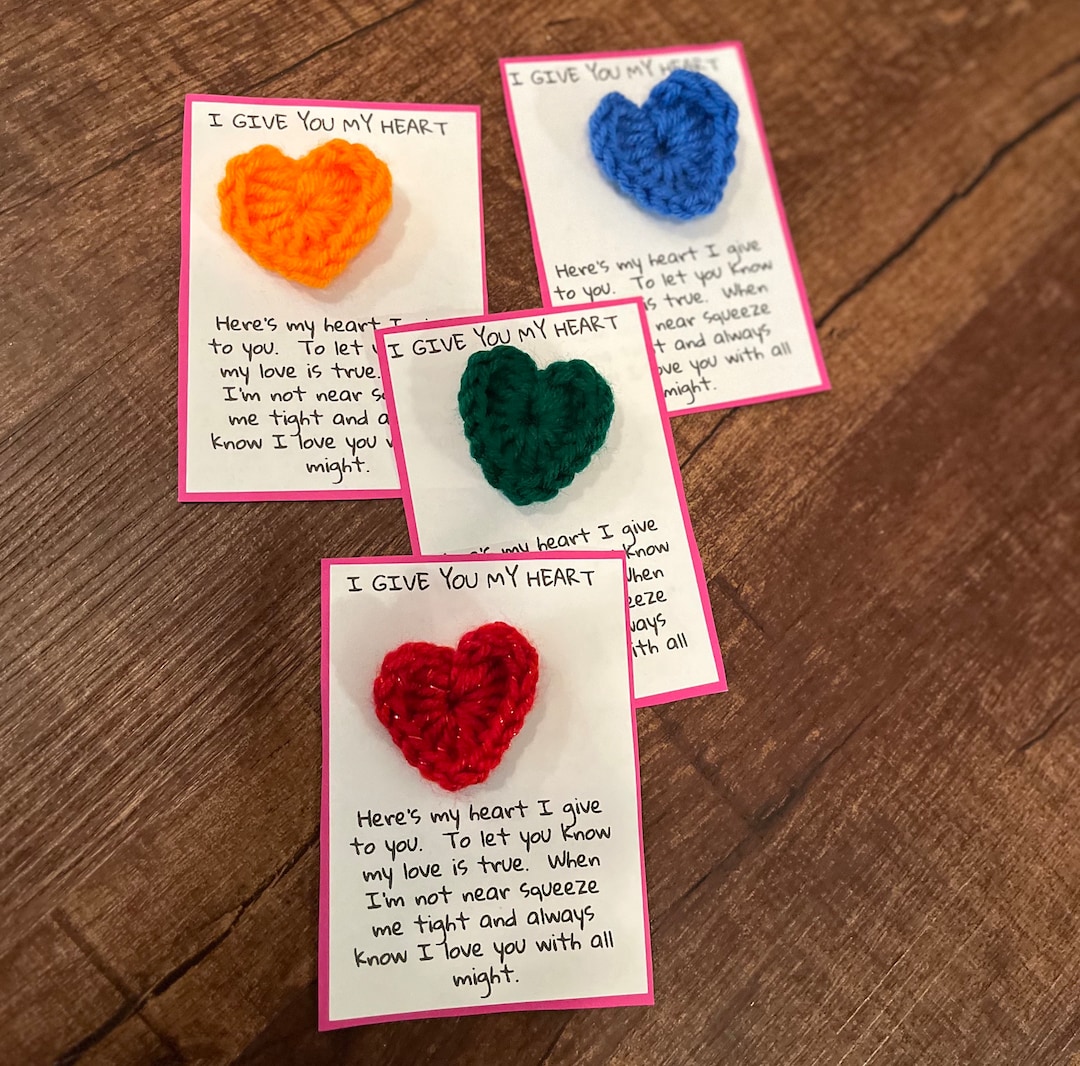 I GIVE YOU MY HEART
Here's my heart I
to you. To let
my love is true.
I'm not near
me tight and
Know I love you
might.
I GIVE YOU MY HEART
Here's my heart I give
to you. To let you Know
is true. When
near squeeze
and always
you with all
might.
I GIVE YOU MY HEART
my heart I give
Know
all
I GIVE YOU MY HEART
Here's my heart I give
to you. To let you Know
my love is true. When
I'm not near squeeze
me tight and always
Know I love you with all
might.